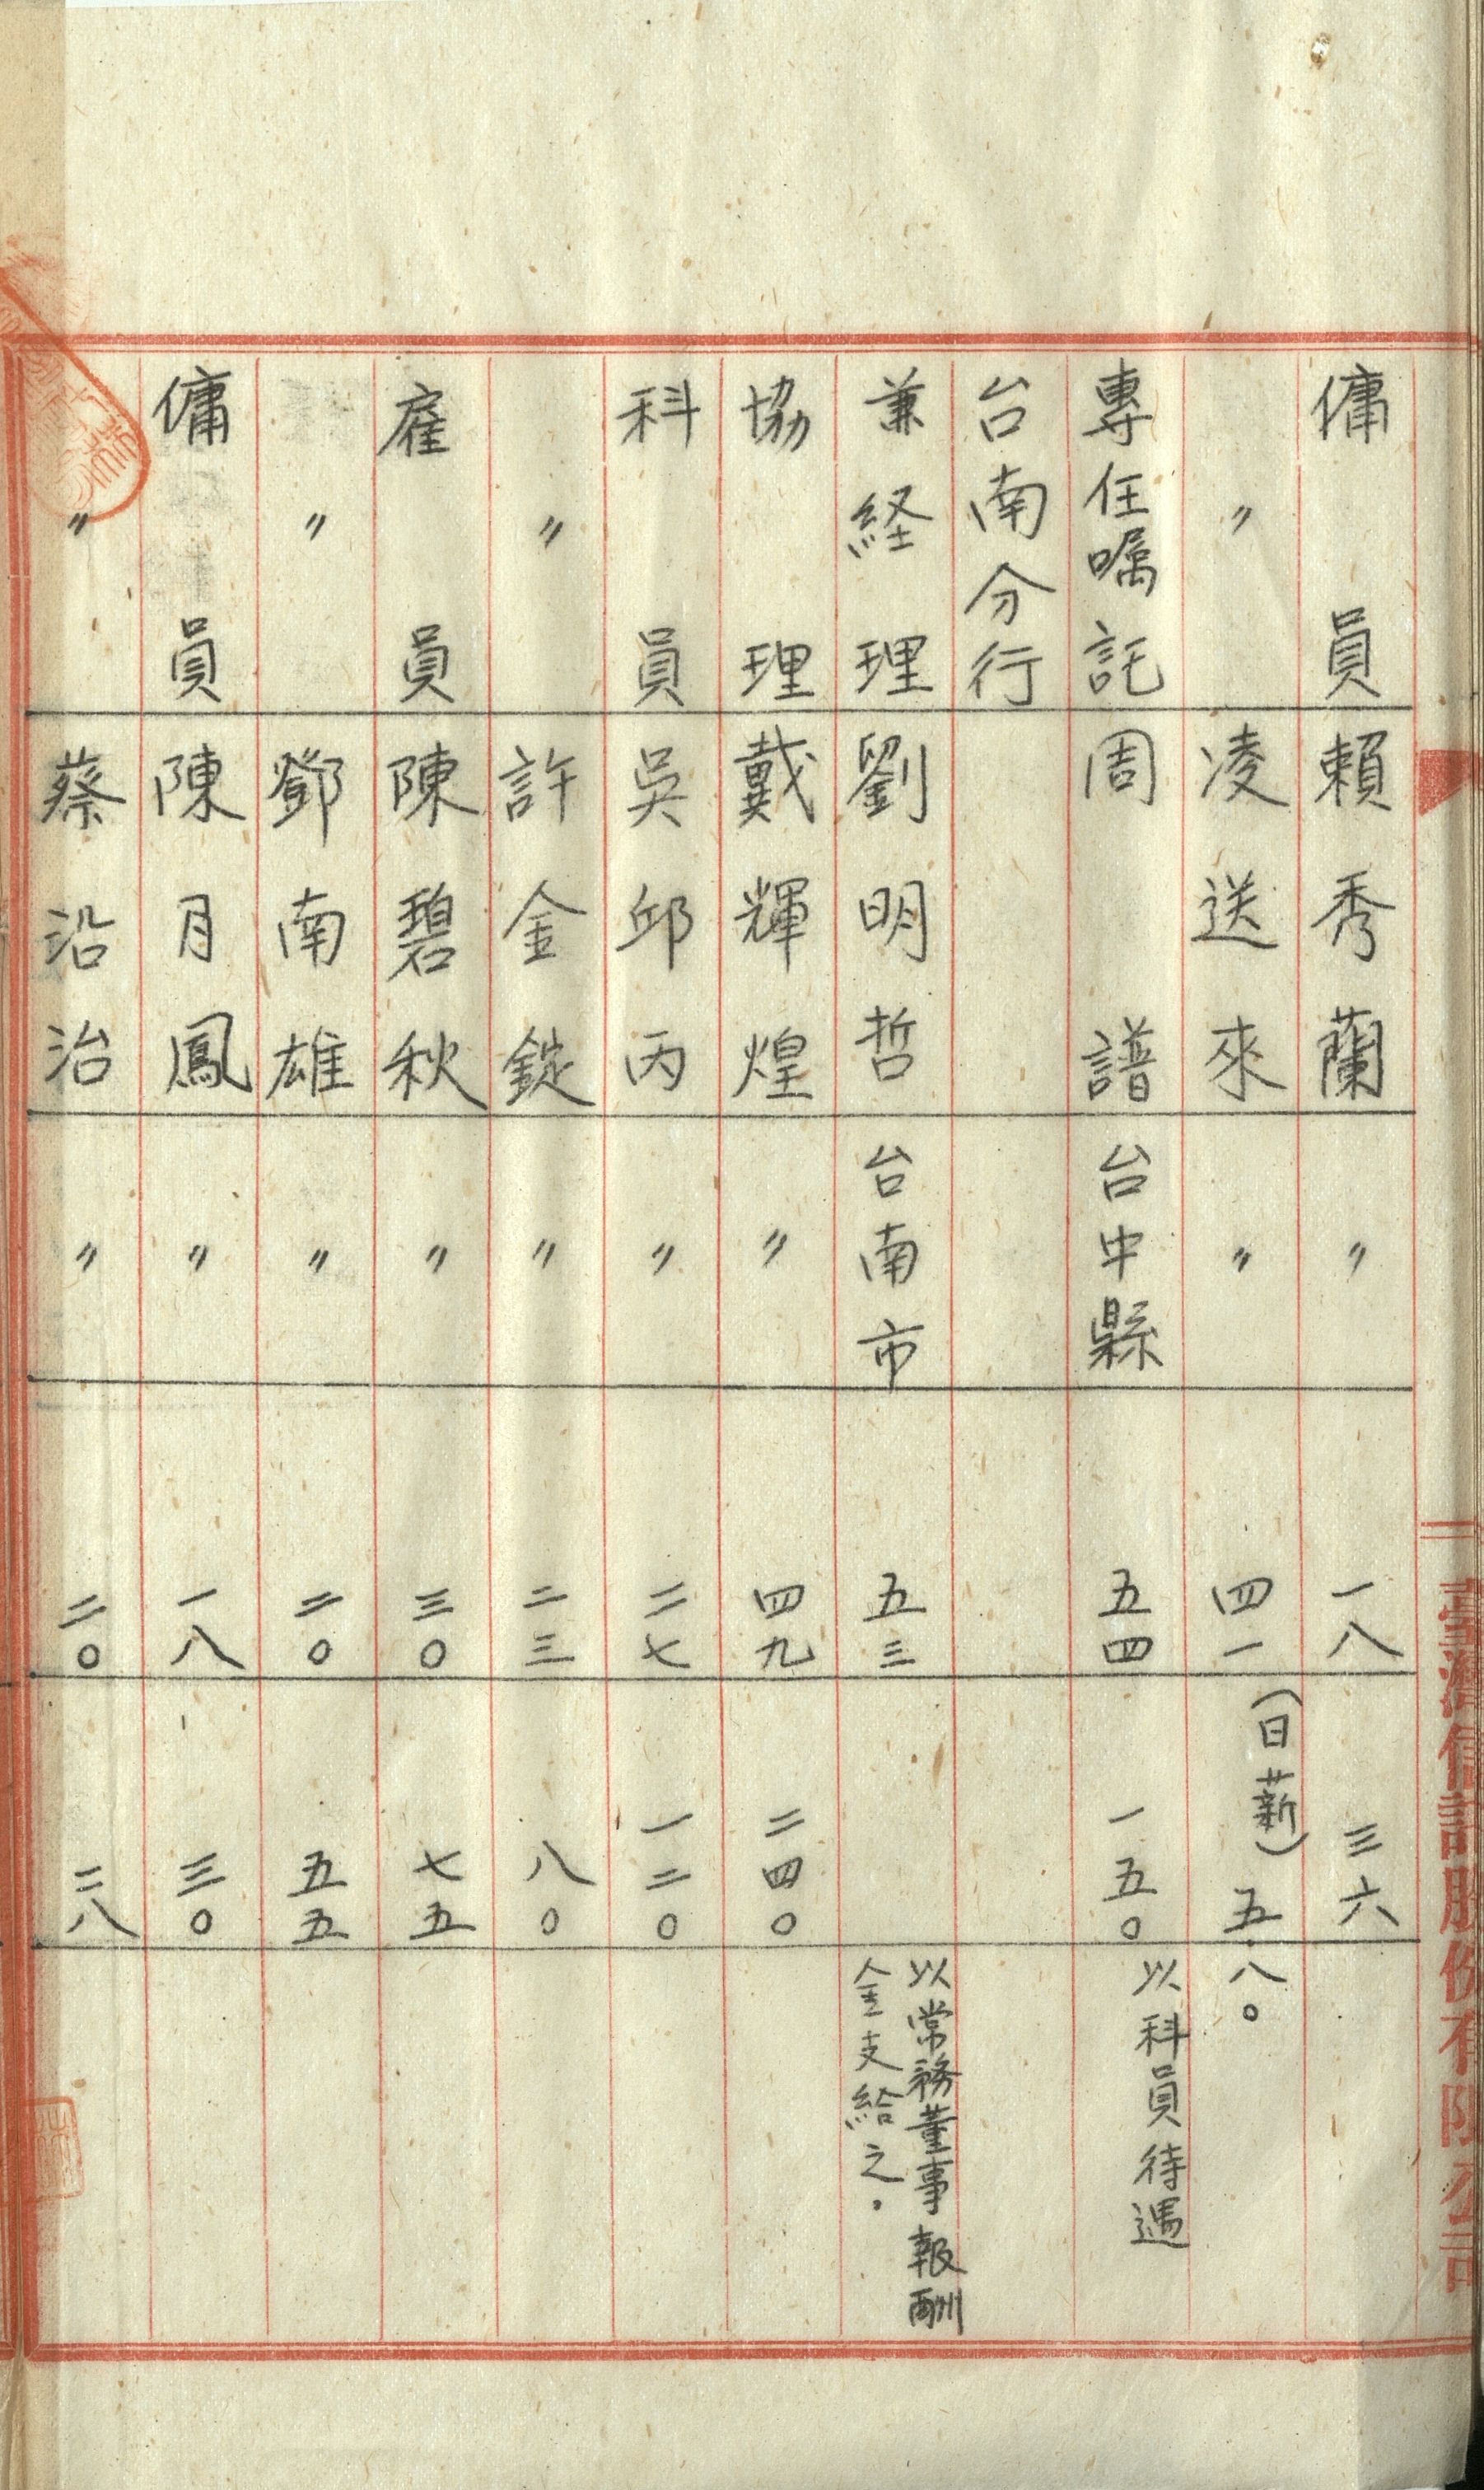 傭員 賴秀蘭 〃 一八 三六
〃 凌送來 〃 四一 (日薪)五.八〇
專任嘱託 周譜 台中縣 五四 一五〇 以科員待遇
台南分行
兼経理 劉明哲 台南市 五三 以常務董事報酬
金支給之。
協理 戴輝煌 〃 四九 二四〇
科員 吳邱丙 〃 二七 一二〇
〃 許金錠 〃 二三 八〇
雇員 陳碧秋 〃 三〇 七五
〃 鄧南雄 〃 二〇 五五
傭員 陳月鳳 〃 一八 三〇
〃 蔡沿治 〃 二〇 二八
臺灣信託股份有限公司